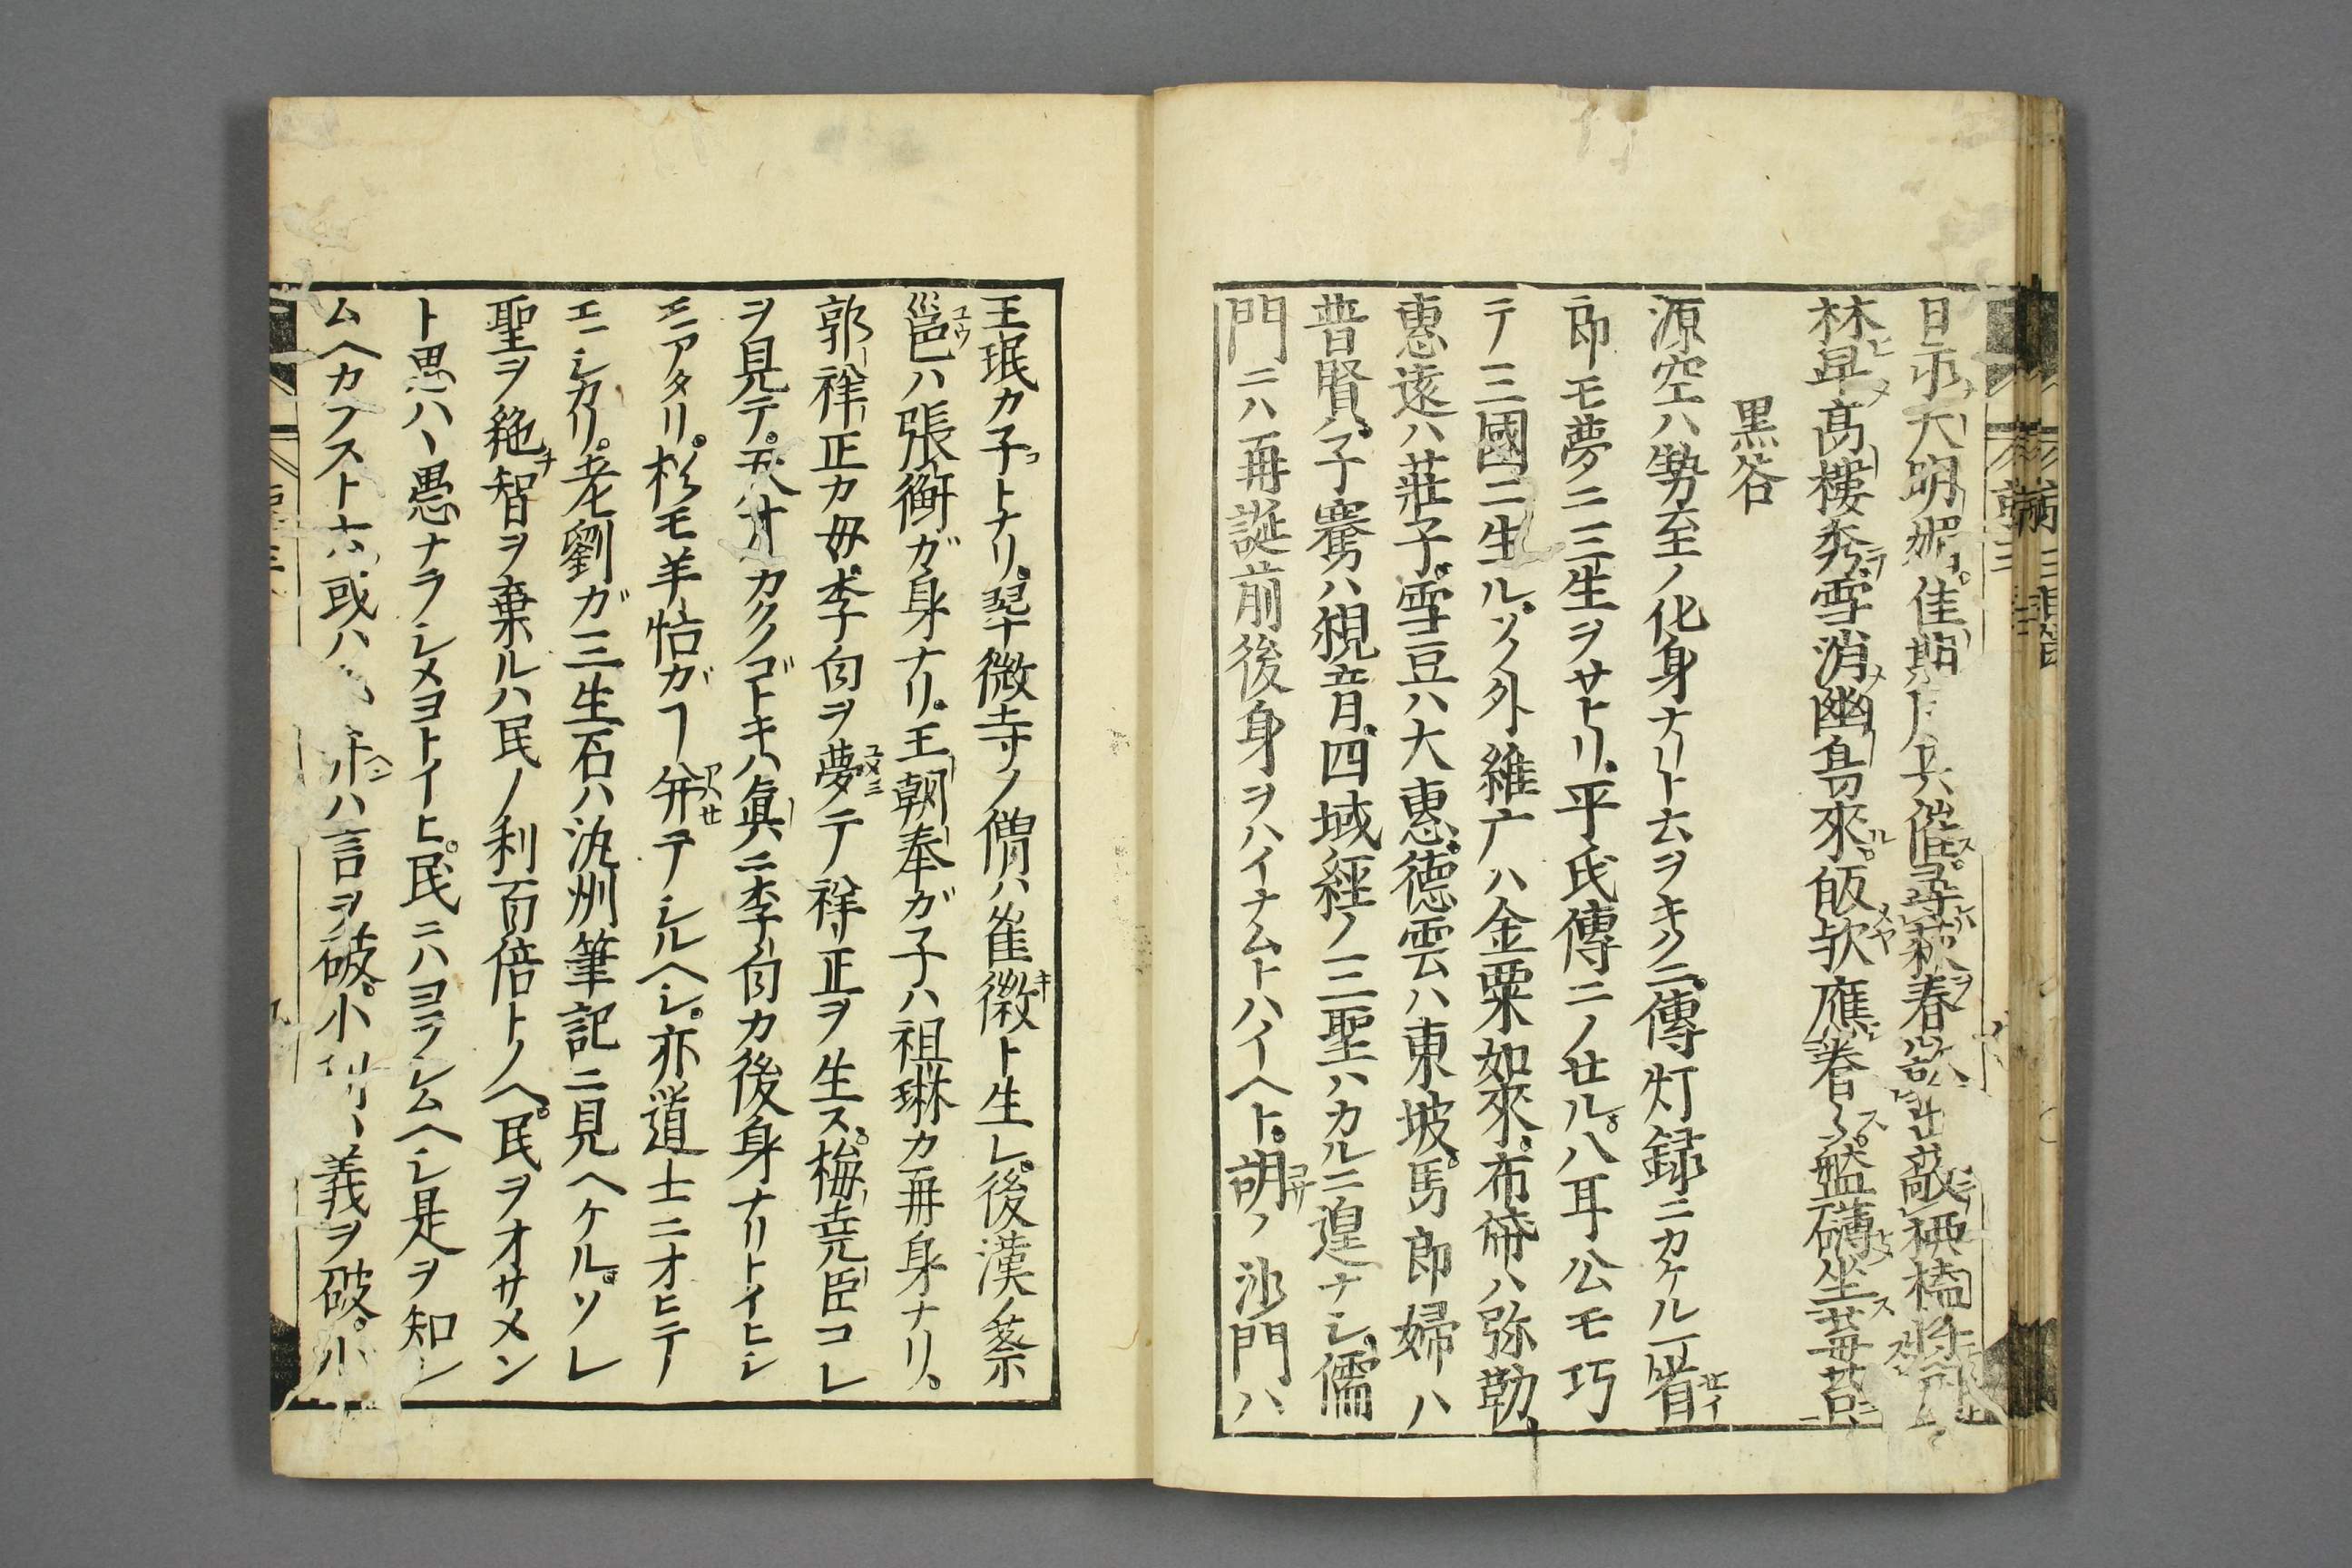 日ホ大明媚佳期催尋萩春敵
林早高樓秀テ雪消メ幽鳥來ル皈欤應眷〻ス盤礴坐ス苺苔ニ
黒谷
源空ハ勢至ノ化身ナリト云ヲキクニ傳灯録ニカケル一瞽
郎モ夢ニ三生ヲサトリ平氏傳ニノセル八耳公モ巧
テ三國ニ生ルソノ外維广ハ金粟如來布帒ハ弥勒
惠遠ハ莊子雪豆ハ大惠德雲ハ東坡馬郎婦ハ
普賢子騫ハ觀音四域經ノ三聖ハカルニ遑ナシ儒
門ニハ再誕前後身ヲハイナムトハイヘト胡ノ沙門ハ
王珉カ子トナリ翠微寺ノ僧ハ崔徽ト生レ後漢ノ蔡
邕ハ張衡ガ身ナリ王朝奉ガ子ハ祖琳カ再身ナリ
郭祥正カ母李白ヲ夢テ祥正ヲ生ス梅尭臣コレ
ヲ見テ天才カクノゴトキハ眞ニ李白カ後身ナリトイヒシ
モアタリ杉モ羊怙ガヿ并テシルヘシ亦道士ニオヒテノ
エニシカリ老劉ガ三生石ハ氿洲筆記ニ見ヘケルソレ
聖ヲ絶智ヲ棄ルハ民ノ利百倍トノヘ民ヲオサメン
ト思ハヽ愚ナラシメヨトイヒ民ニハヨラシムヘシ是ヲ知レ
ムヘカラストナハ或ハ ハ言ヲ破小 義ヲ破小